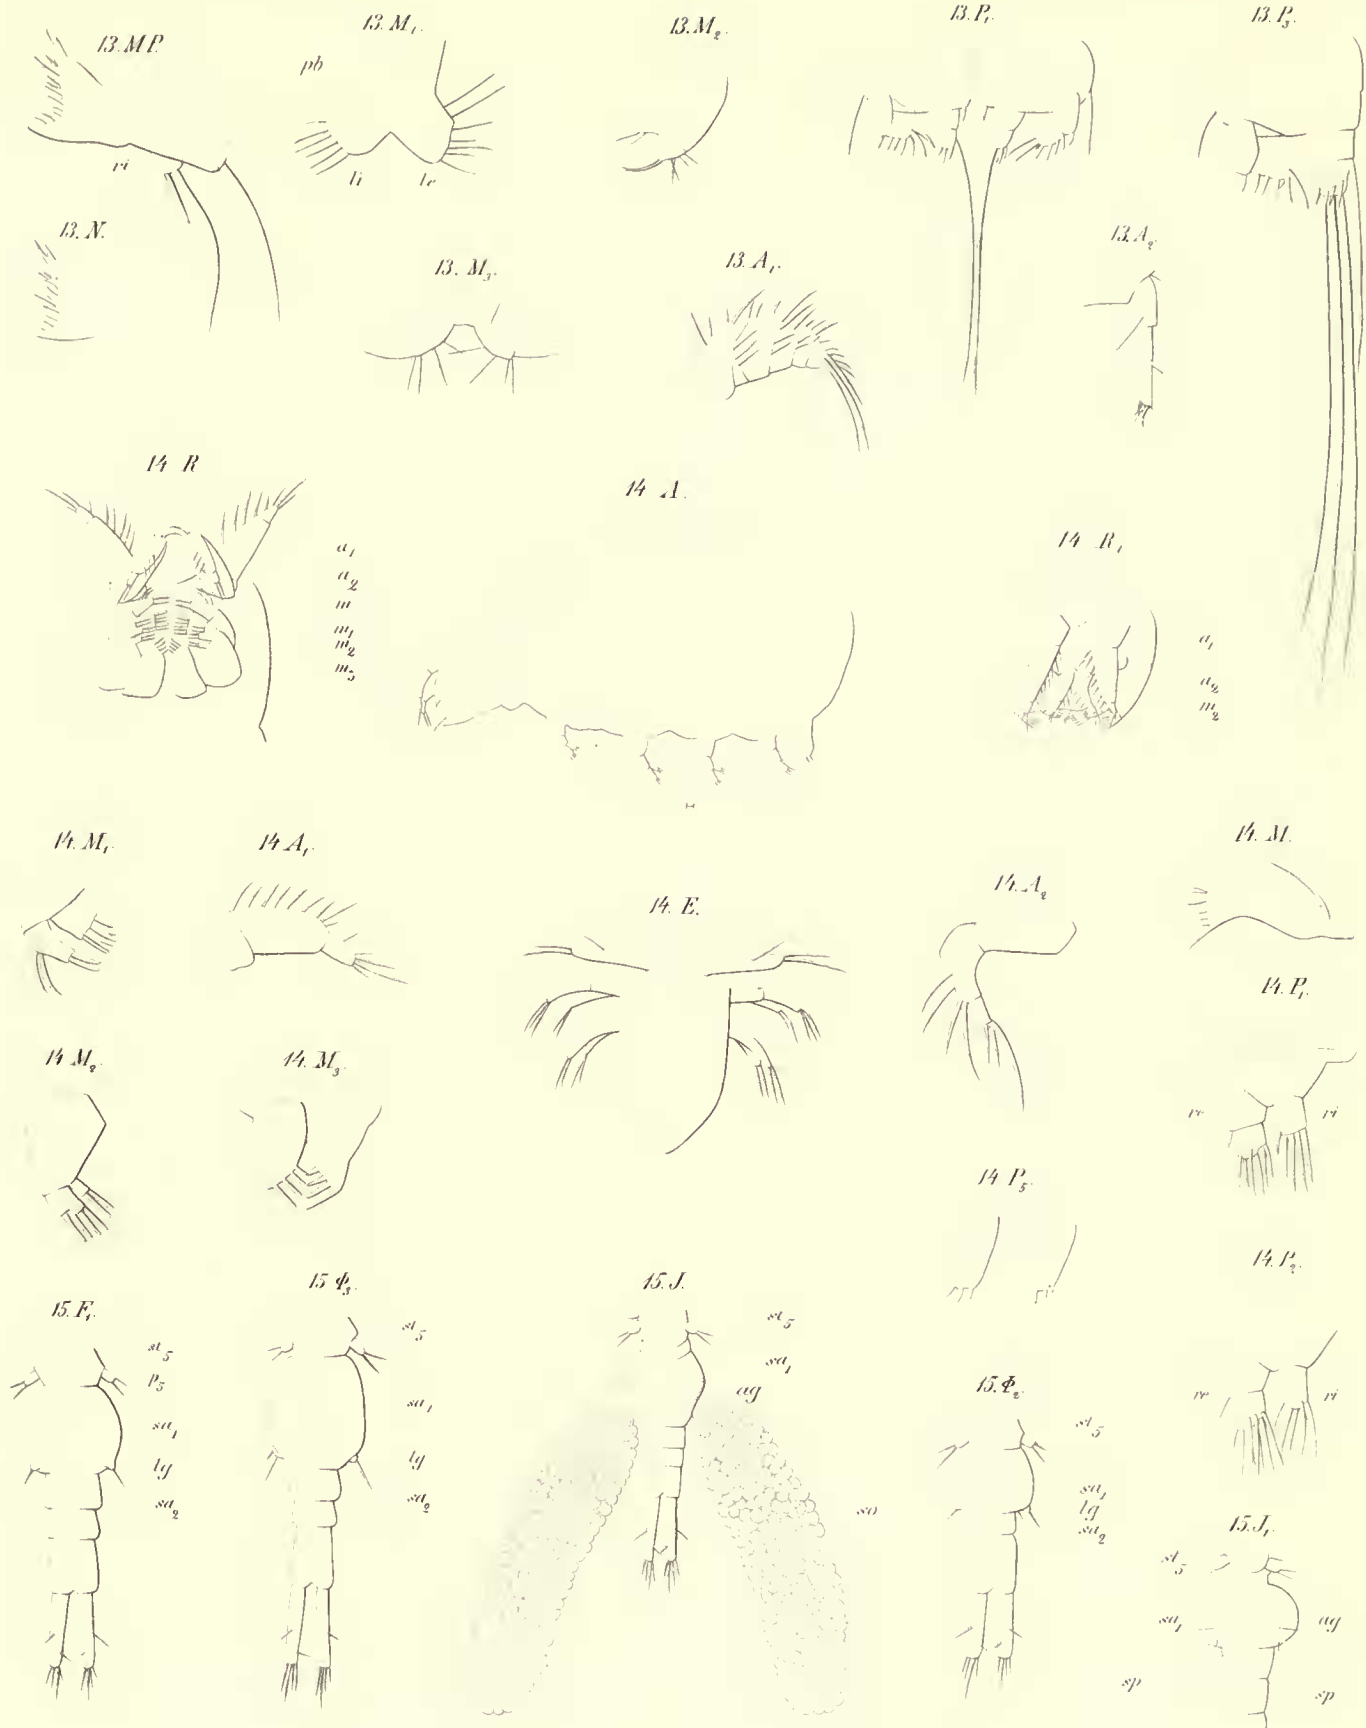 13. MP.
13. M₁.
13. M₂.
13. P₁.
13. P₃.
pb
ri
li
le
13. N.
13. M₃.
13. A₁.
13. A₂.
14 R
14 A.
14 R₁
a₁
a₂
m
m₁
m₂
m₃
a₁
a₂
m₂
14. M₁.
14 A₁.
14. E.
14. A₂
14. M.
14. P₁.
re
ri
14 M₂.
14. M₃.
14 P₅.
14. P₂.
re
ri
15. F₁.
st₅
p₅
sa₁
lg
sa₂
15 Φ₃.
st₅
sa₁
lg
sa₂
15. J.
st₅
sa₁
ag
so
15. Φ₂.
st₅
sa₁
lg
sa₂
15. J₁.
st₅
sa₁
ag
sp
sp